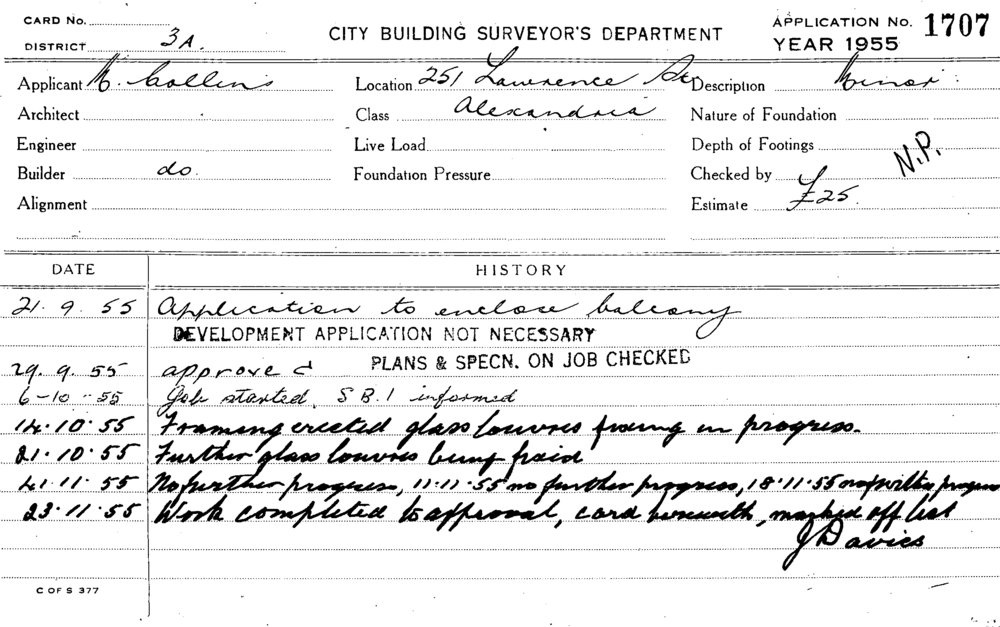 CARD No.
DISTRICT 3A.
CITY BUILDING SURVEYOR'S DEPARTMENT
APPLICATION No. 1707
YEAR 1955
Applicant M. Collins Location 251 Lawrence St Description Minor
Architect Class Alexandria Nature of Foundation
Engineer Live Load Depth of Footings N.P.
Builder do. Foundation Pressure Checked by
Alignment Estimate £25.
DATE HISTORY
21. 9. 55 Application to enclose balcony
DEVELOPMENT APPLICATION NOT NECESSARY
PLANS & SPECN. ON JOB CHECKED
29. 9. 55 approved
6-10-55 Job started. S.B.I informed
14.10.55 Framing erected glass louvres fixing in progress.
21.10.55 Further glass louvres being fixed
4.11.55 No further progress, 11.11.55 no further progress, 18.11.55 no further progress
23.11.55 Work completed to approval, card herewith, marked off list
J Davies
C OF S 377